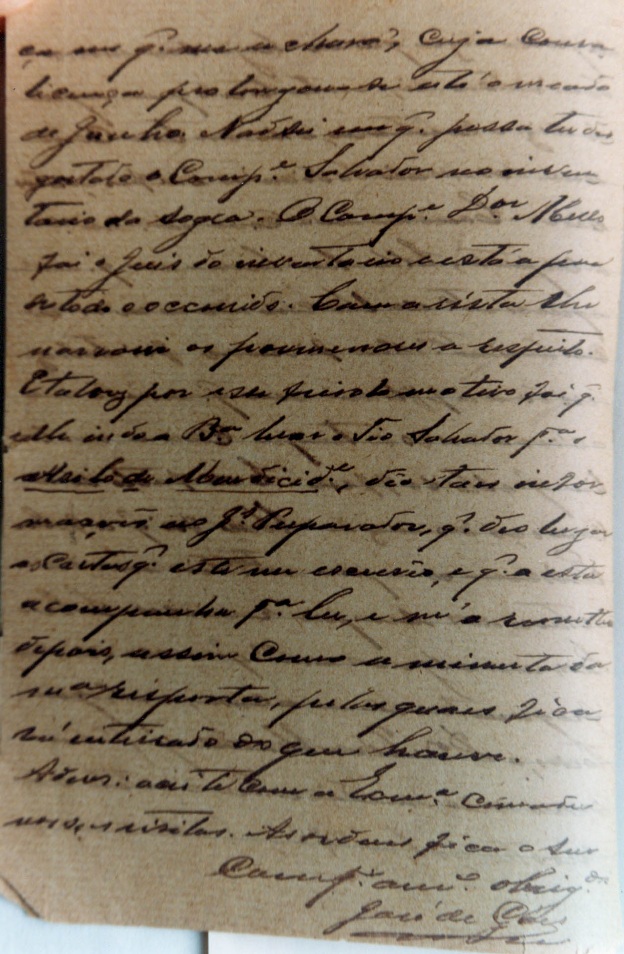 ça em q. me achava, cuja conva
licença prolongou-se até o meado
de Junho. Não sei em q. possa ter des
gostado o Comp.e Salvador no inven
tario da sogra. O Comp.e D.or Mello
foi o Juis do inventario e está a par
de todo o occorrido. Com a vista lhe
narrarei os pormenores a respeito.
E talvez por esse motivo foi q.
elle indo a B.a levar o Tio Salvador p.a o
Asilo de Mendicid.e, deo taes infor
mações ao J. Preparador, q. deo lugar
as cartas q. este me escreveo, e q. a esta
acompanha p.a ler, e m'a remetter
depois, assim como a minuta da
m.a resposta, pelas quaes fica
rá inteirado do que houve.
Adeos: aceite com a Exm.a Comadre
nossas visitas. As ordens fica o seu
Comp.e am.o obrig.do
José de